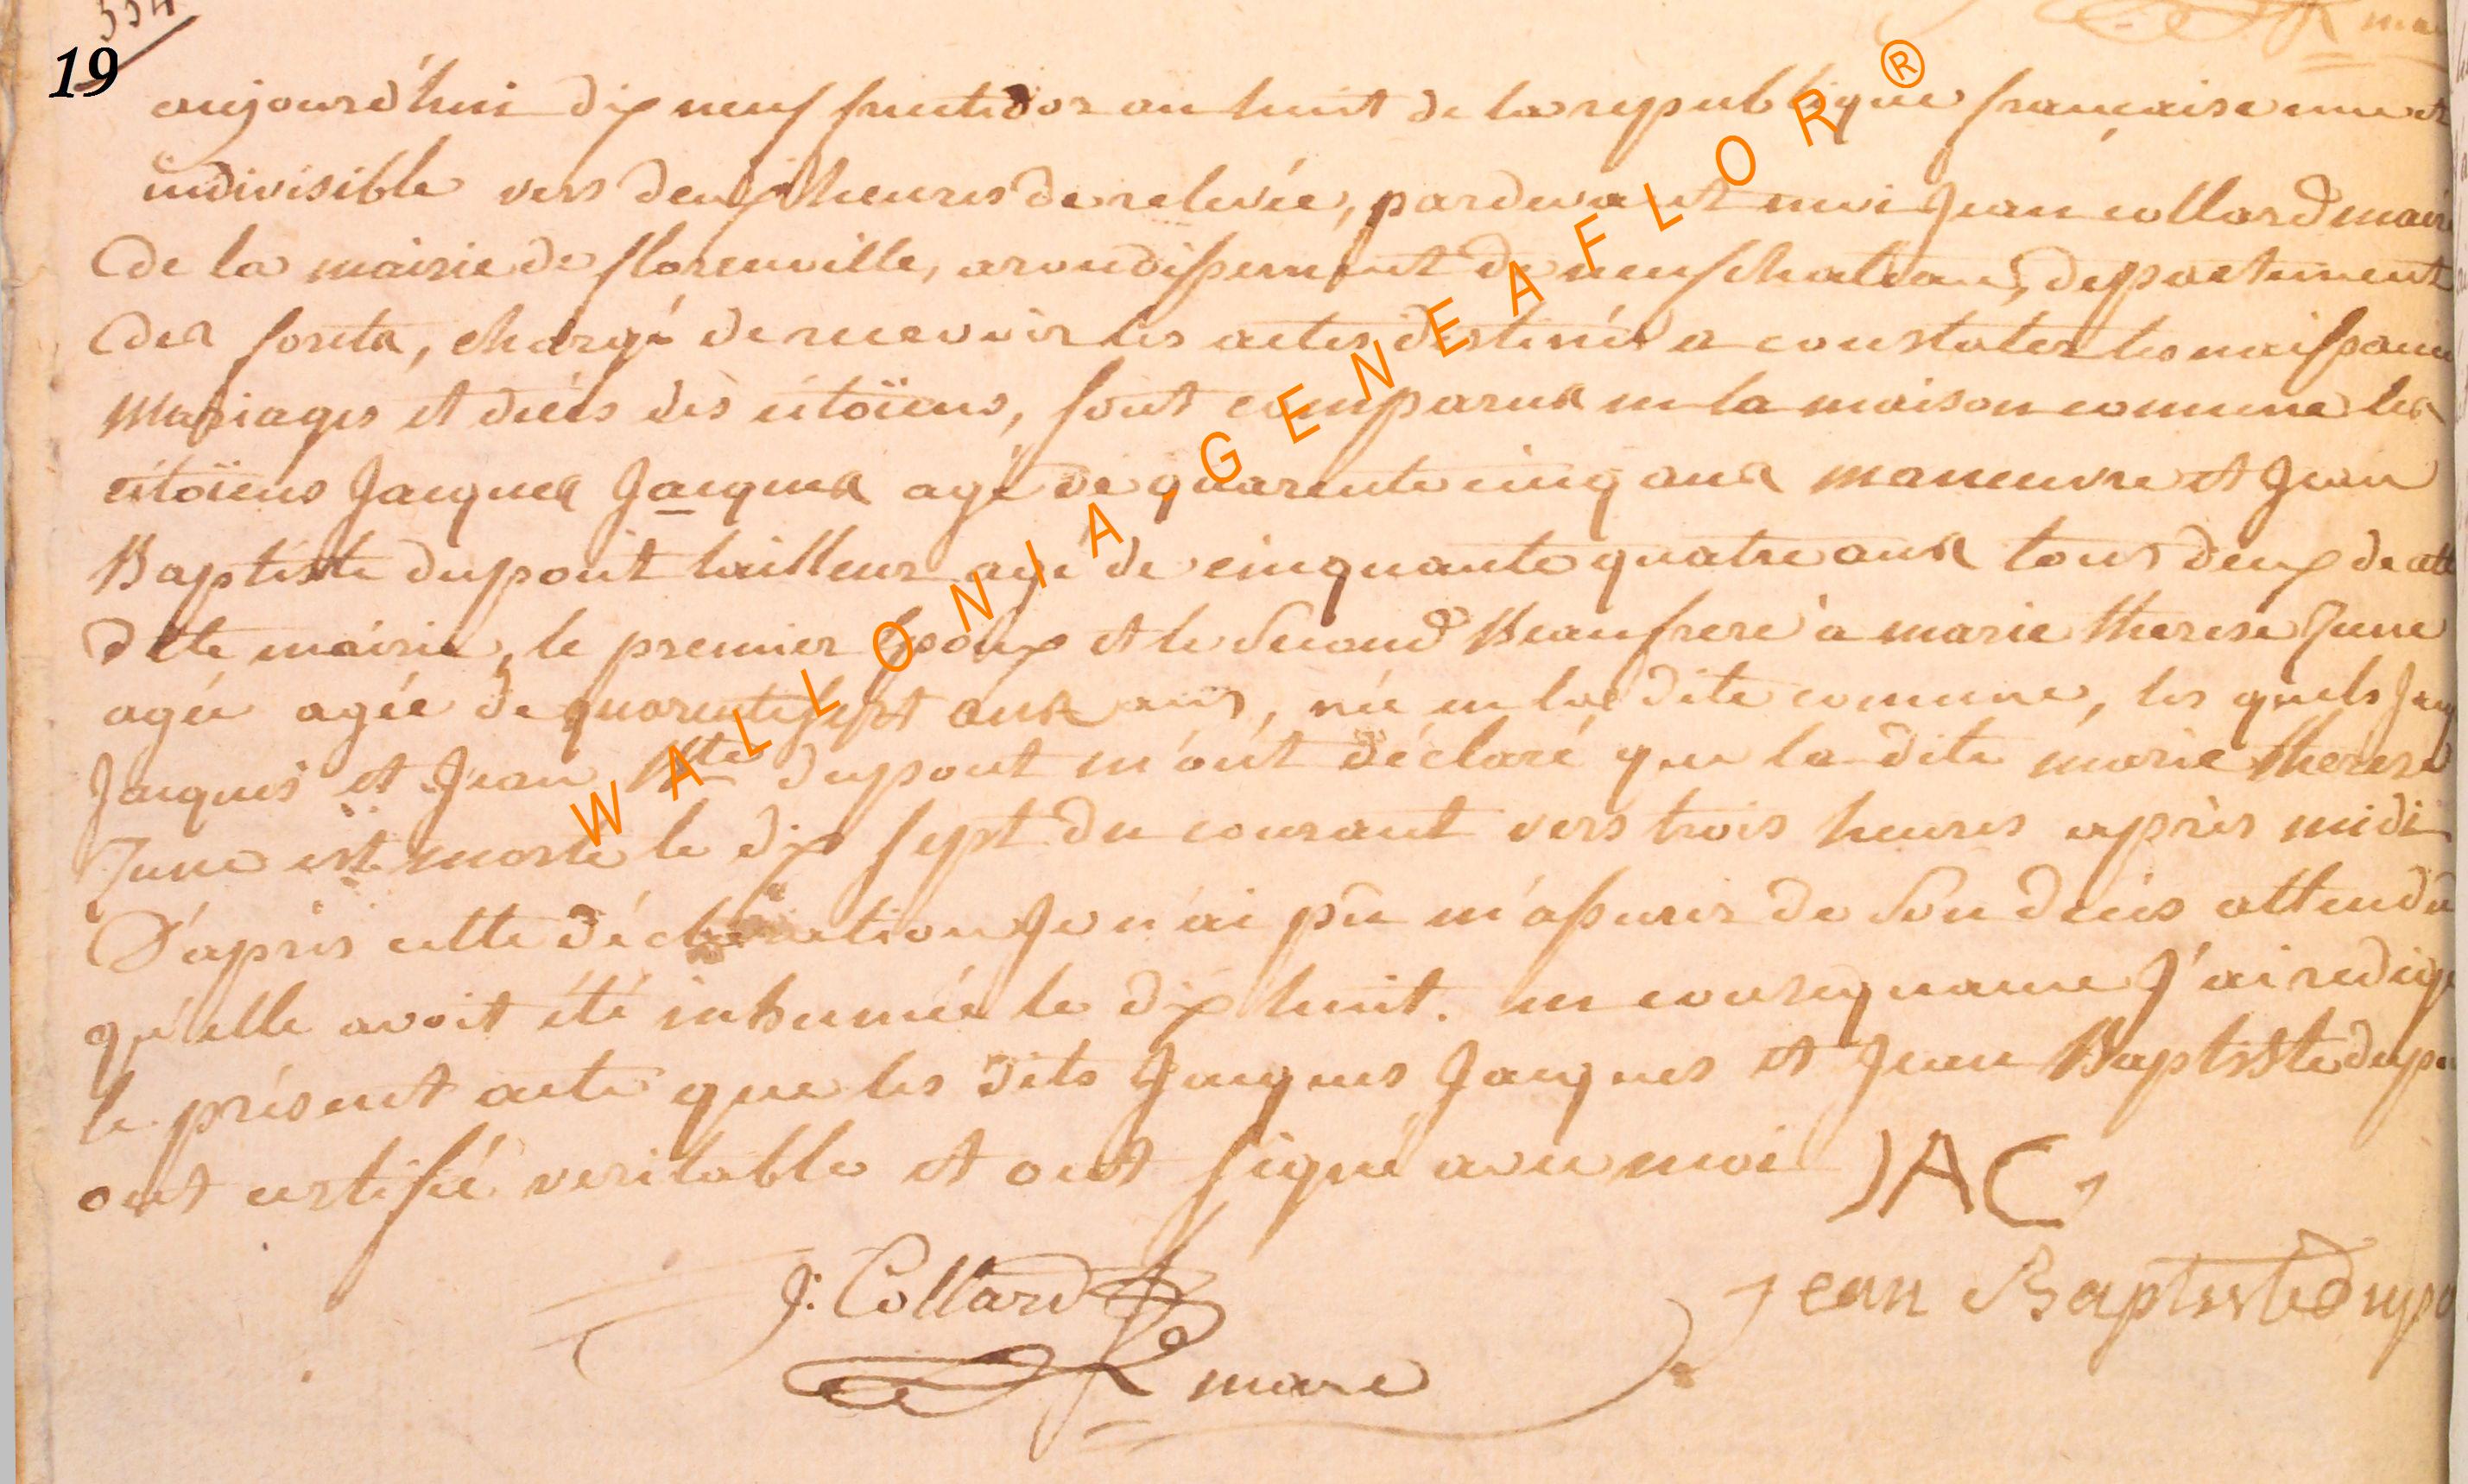 334
19
aujourd'hui dix neuf fructidor an huit de la republique française une et
indivisible vers deux heures de relevée, pardevant moi Jean collard maire
de la mairie de florenville, arondissement de neufchateau, departement
des forets, chargé de recevoir les actes destinés a constater les naissances
Mariages et décès des citoïens, sont comparus en la maison comune les
citoïens Jacques Jacques agé de quarente cinq ans maneuvre et Jean
Baptiste dupont tailleur agé de cinquante quatre ans tous deux de cette
dite mairie, le premier Epoux et le Second Beaufrere à marie therese June
agée agée de quarente sept ans ans, née en la dite comune, les quels Jacq
Jacques et Jean Bte dupont m'ont déclaré que la dite marie therese
June est morte le dix sept du courant vers trois heures après midi
D'apris cette déclaration Je n'ai pû m'assurer de Son décès attendu
qu'elle avoit été inhumée le dix huit. en consequence J'ai redigé
le présent acte que les dits Jacques Jacques et Jean Baptiste dupo
ont certifié veritable et ont signé avec moi JAC
J. Collard
Jean Baptiste dupo
maire
WALLONIA.GENEAFLOR®